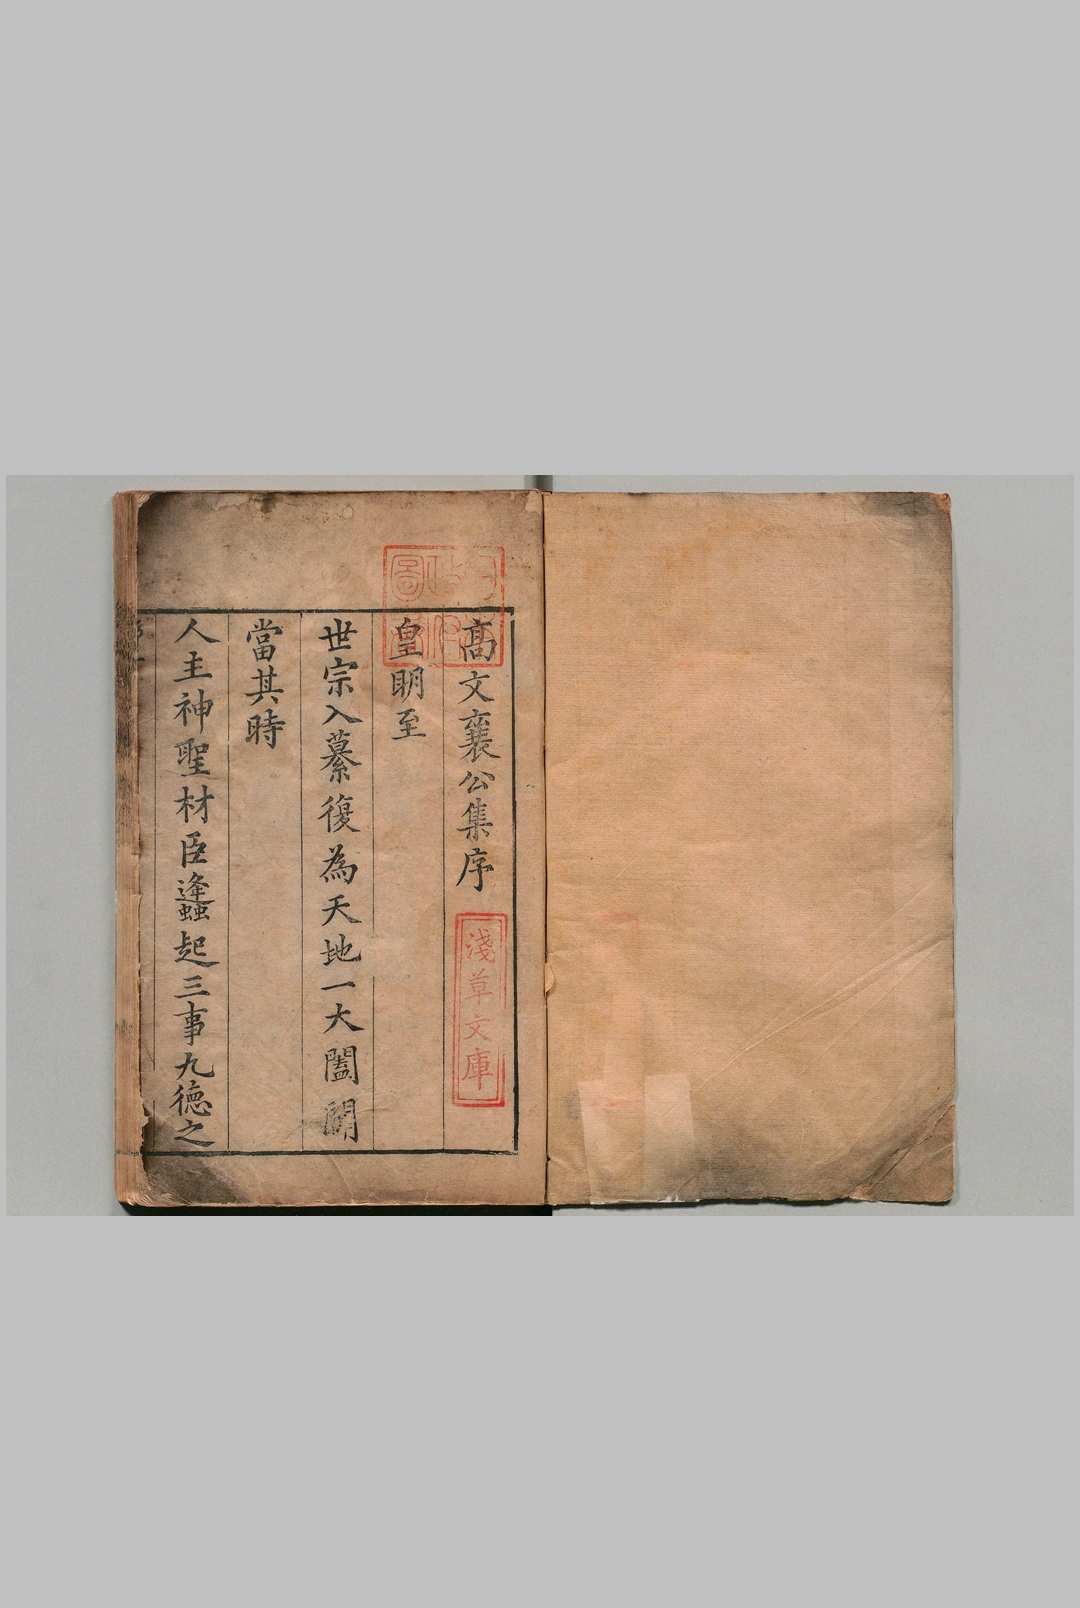 高文襄公集序
皇明至
世宗入纂復為天地一大闔闢
當其時
人主神聖材臣蠭起三事九德之
淺草文庫